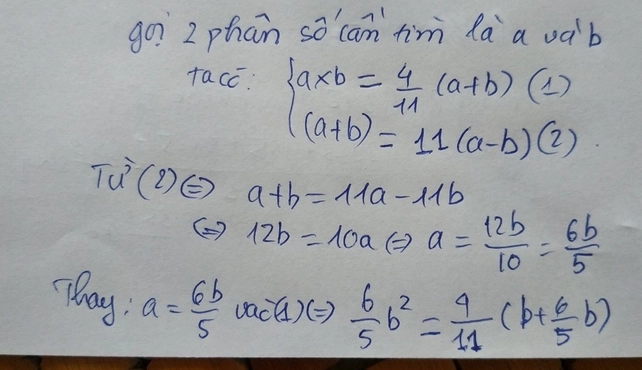 gọi 2 phân số cần tìm là a và b
ta có: { a x b = 4/11 (a+b) (1)
(a+b) = 11(a-b) (2).
Từ (2) <=> a+b = 11a - 11b
<=> 12b = 10a <=> a = 12b/10 = 6b/5
Thay: a = 6b/5 vào (1) <=> 6/5 b² = 4/11 (b + 6/5 b)